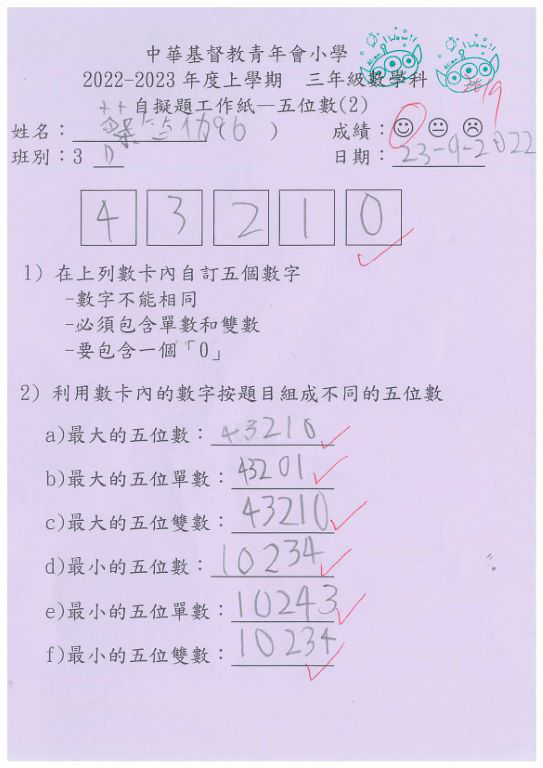 中華基督教青年會小學
2022-2023 年度上學期 三年級數學科
自擬題工作紙—五位數(2)
姓名： ） 成績：
班別：3 D 日期：23-9-2022
4 3 2 1 0
1) 在上列數卡內自訂五個數字
-數字不能相同
-必須包含單數和雙數
-要包含一個「0」
2) 利用數卡內的數字按題目組成不同的五位數
a)最大的五位數：43210
b)最大的五位單數：43201
c)最大的五位雙數：43210
d)最小的五位數：10234
e)最小的五位單數：10243
f)最小的五位雙數：10234